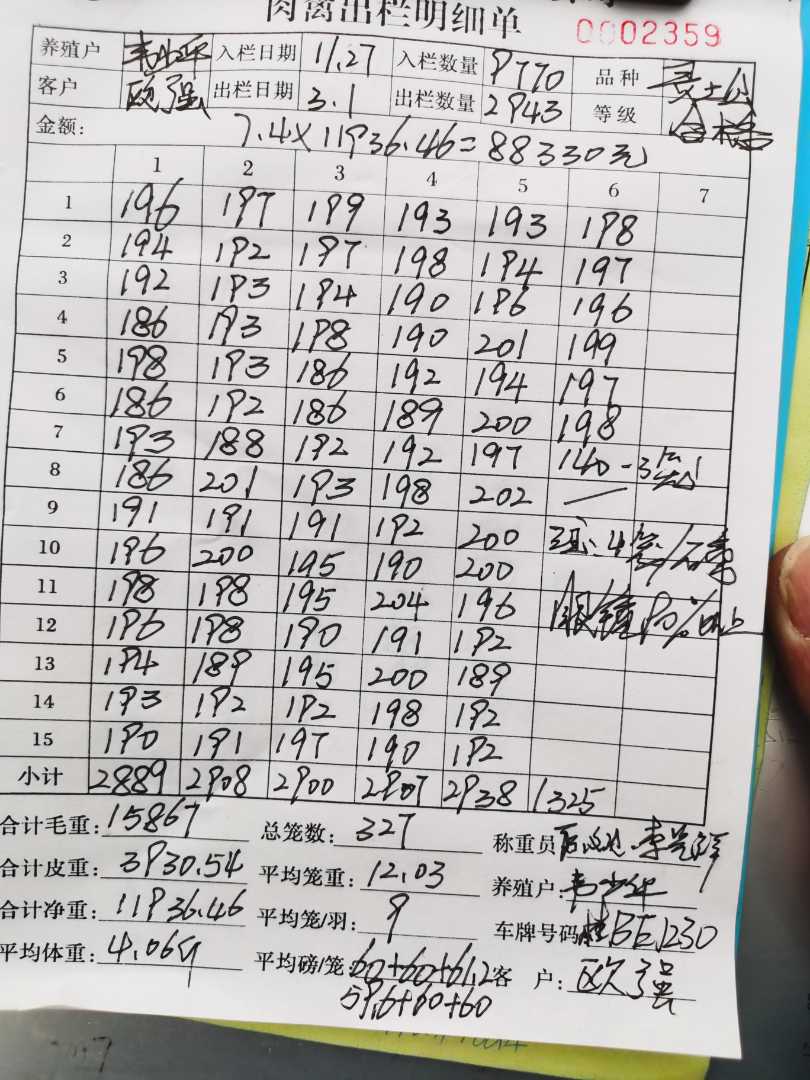 肉禽出栏明细单
0002359
养殖户 韦少华 入栏日期 11.27 入栏数量 9770 品种
客户 欧强 出栏日期 3.1 出栏数量 2943 等级 合格
金额: 7.4×11936.46=88330元
1 2 3 4 5 6 7
1 196 197 199 193 193 198
2 194 192 197 198 194 197
3 192 193 194 190 196 196
4 186 193 198 190 201 199
5 198 193 186 192 194 197
6 186 192 186 189 200 198
7 193 188 192 192 197 140-3笼
8 186 201 193 198 202 —
9 191 191 191 192 200
10 196 200 195 190 200
11 198 198 195 204 196
12 196 198 190 191 192
13 194 189 195 200 189
14 193 192 192 198 192
15 190 191 197 190 192
小计 2889 2908 2900 2907 2938 1325
合计毛重: 15867 总笼数: 327 称重员
合计皮重: 3930.54 平均笼重: 12.03 养殖户: 韦少华
合计净重: 11936.46 平均笼/羽: 9 车牌号码 桂BE1230
平均体重: 4.06斤 平均磅/笼: 60+60+61.2 客 户: 欧强
59.6+60+60